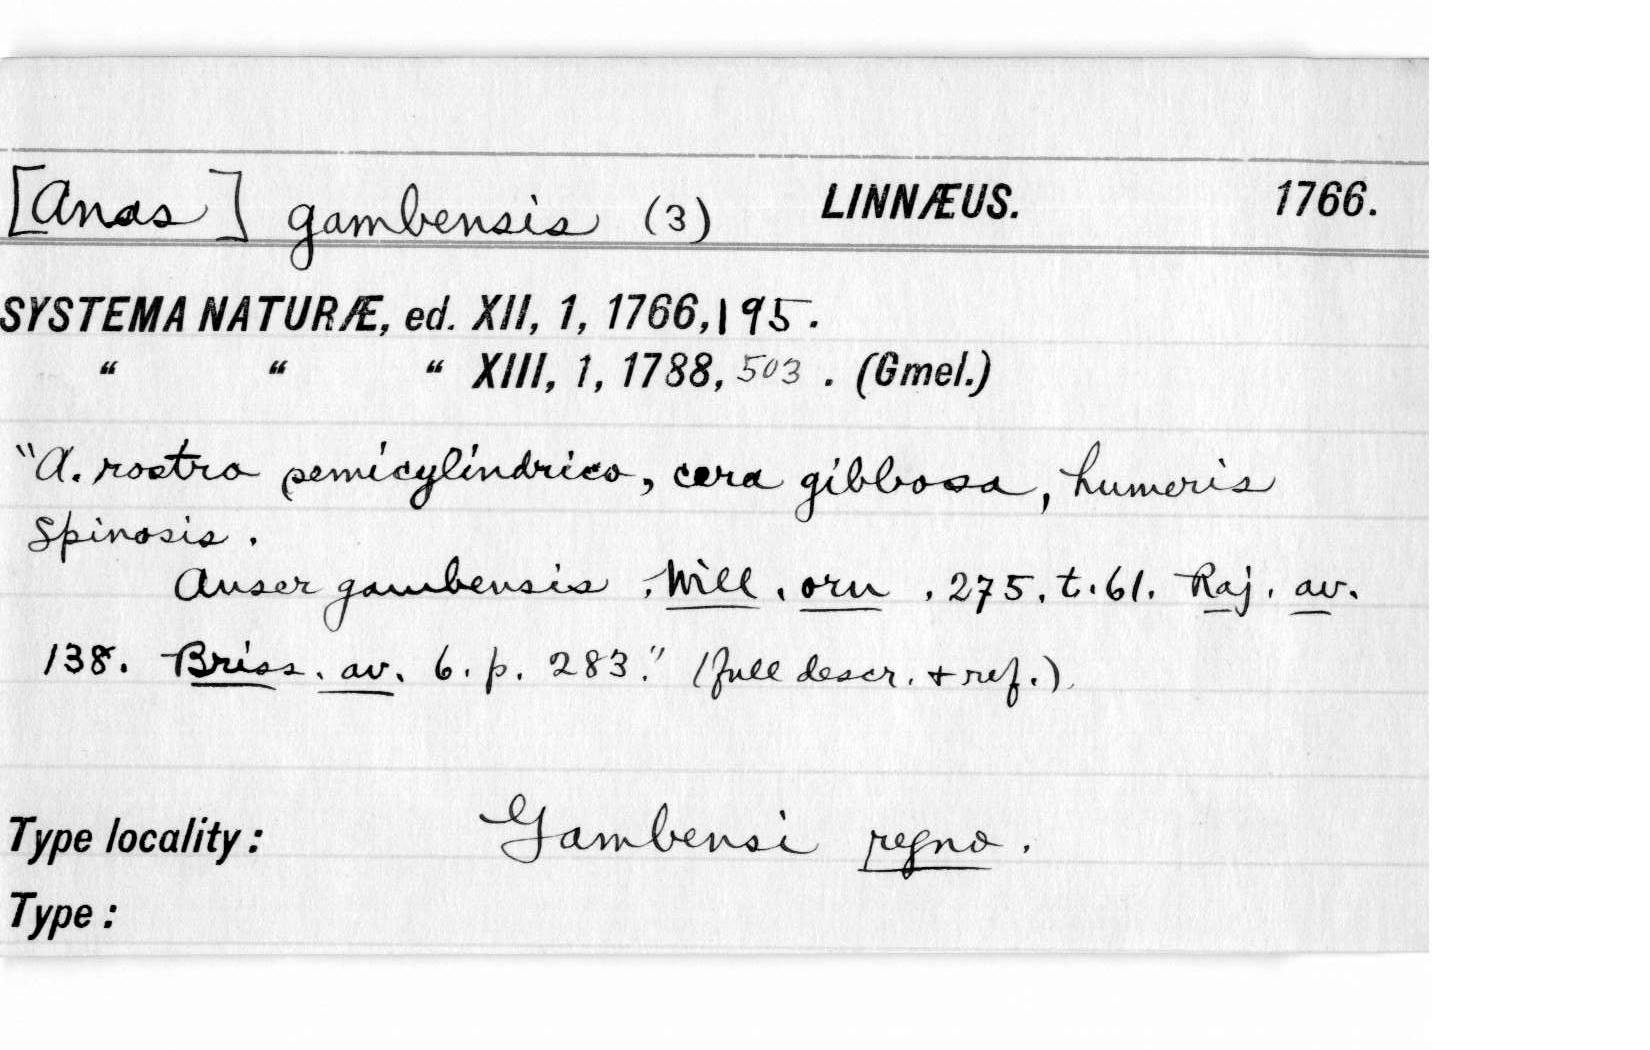 [Anas] gambensis (3) LINNÆUS. 1766.
SYSTEMA NATURÆ, ed. XII, 1, 1766, 195.
" " " XIII, 1, 1788, 503. (Gmel.)
"A. rostro semicylindrico, cera gibbosa, humeris
spinosis.
Anser gambensis. Will. orn. 275. t. 61. Raj. av.
138. Briss. av. 6. p. 283." (full descr. + ref.).
Type locality: Gambensi regno.
Type: